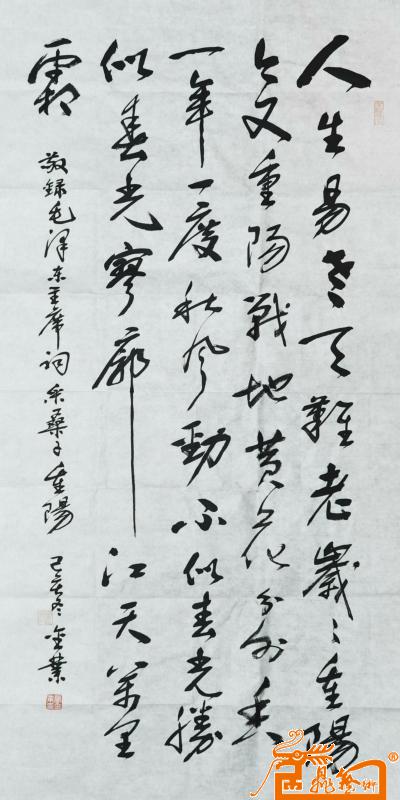 人生易老天難老歲々重陽
今又重陽戰地黄花分外香
一年一度秋风勁不似春光勝
似春光寥廓江天萬里
霜
敬録毛澤東主席詞采桑子重陽
己亥冬金業